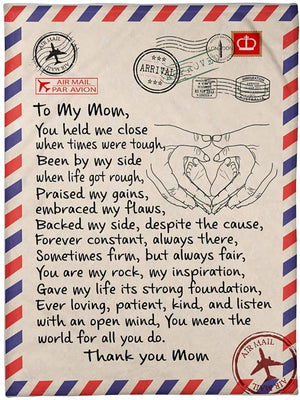 AIR MAIL
AIR MAIL
ARRIVAL
AIR MAIL
PAR AVION
To My Mom,
You held me close
when times were tough,
Been by my side
when life got rough,
Praised my gains,
embraced my flaws,
Backed my side, despite the cause,
Forever constant, always there,
Sometimes firm, but always fair,
You are my rock, my inspiration,
Gave my life its strong foundation,
Ever loving, patient, kind, and listen
with an open mind, You mean the
world for all you do.
Thank you Mom
AIR MAIL
AIR MAIL